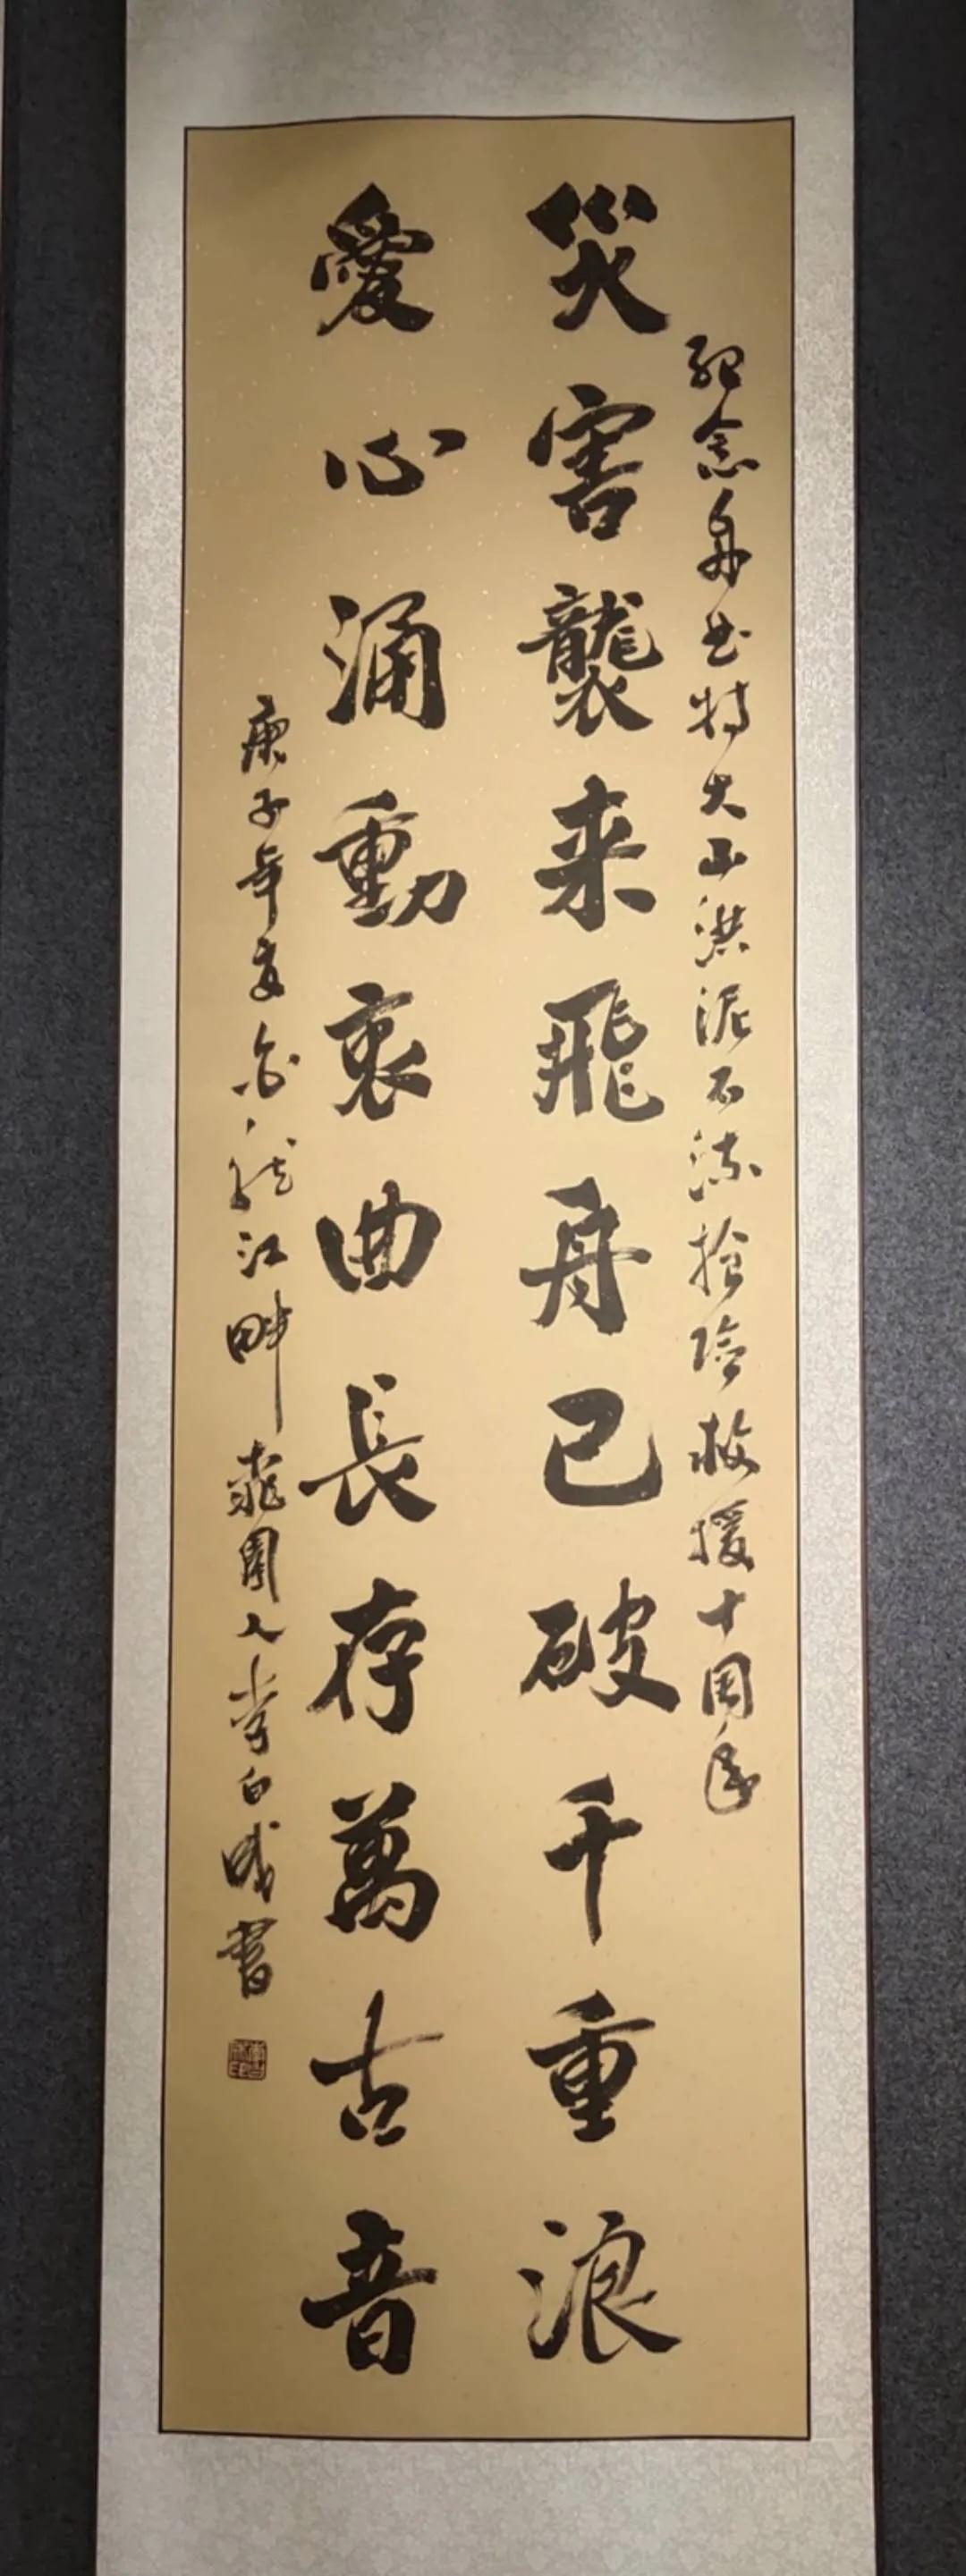 纪念舟曲特大山洪泥石流抢险救援十周年
災害襲来飛舟已破千重浪
愛心涌動衷曲長存萬古音
庚子年夏白龙江畔 龍園人李白成書